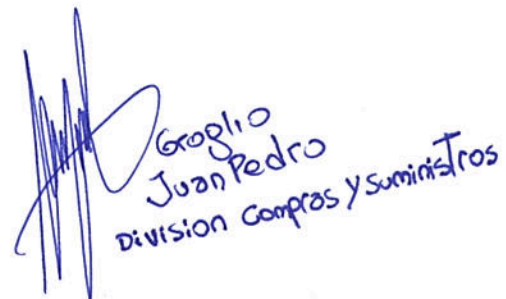 Groglio
Juan Pedro
Division Compras y suministros